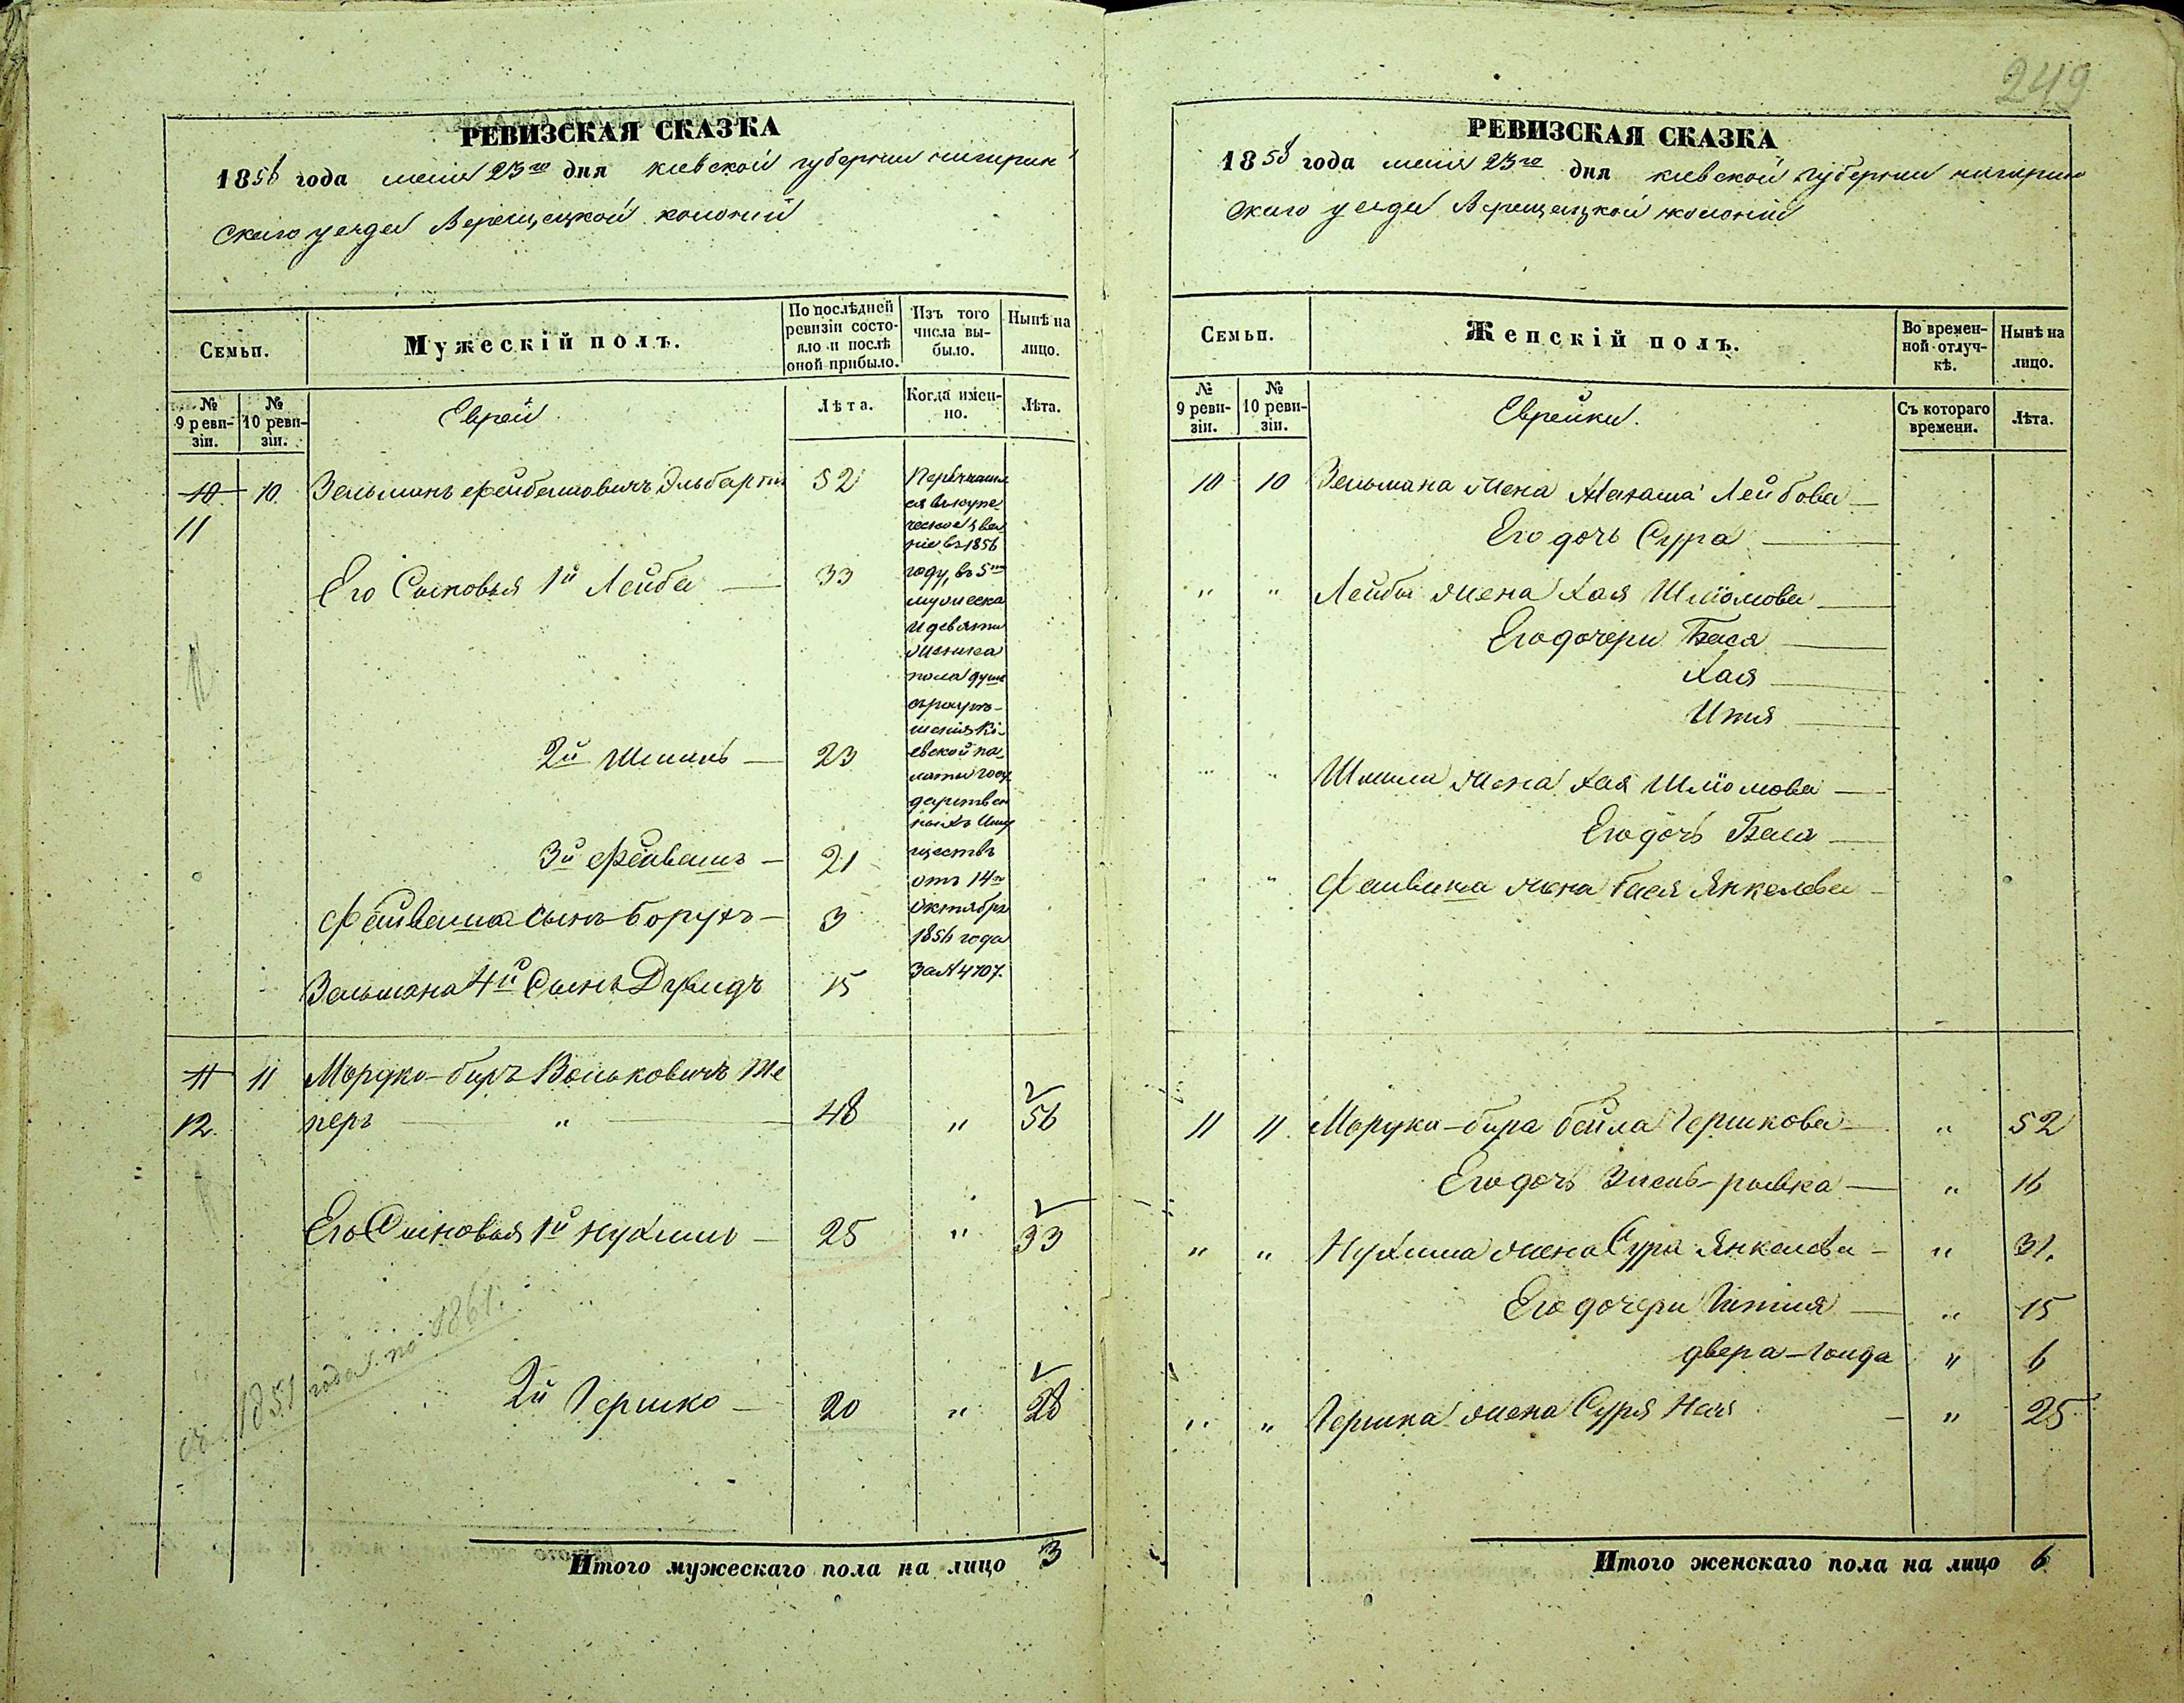 249
РЕВИЗСКАЯ СКАЗКА
1858 года мая 23го дня киевской губернии чигирин
скаго уезда Верещацкой колоний
Семьи.
Мужескій полъ.
По послѣдней ревизіи состояло и послѣ оной прибыло.
Изъ того числа выбыло.
Нынѣ на лицо.
№ 9 ревизіи.
№ 10 ревизіи.
Еврей
Лѣта.
Когда именно.
Лѣта.
10 10 Зельманъ Эльбарт 52
11
Перечислил
ся въ купе
ческое зва
ніе въ 1856
году, въ 5ти
мужеска
и девяти
женска
пола душъ
Кі
евской па
латы госу
дарствен
ныхъ Иму
ществъ
отъ 14го
Октября
1856 года
За № 4707.
Его Сыновья 1й Лейба 33
2й Шмиль 23
3й Файвишъ 21
Файвиша сынъ Борухъ 3
Зельмана 4й Сынъ Дувидъ 15
11 11 Мордко-биръ Вольковичъ
12. перъ " 48 " 56
Его Сыновья 1й Нухимъ 25 " 33
съ 1851 года по 1861.
2й Гершко 20 " 28
Итого мужескаго пола на лицо 3
РЕВИЗСКАЯ СКАЗКА
1858 года мая 23го дня киевской губернии чигирин
скаго уезда Верещацкой колоний
Семьи.
Женскій полъ.
Во временной отлучкѣ.
Нынѣ на лицо.
№ 9 ревизіи.
№ 10 ревизіи.
Еврейки.
Съ котораго времени.
Лѣта.
10 10 Зельмана жена Лейбова
Его дочь Сура
" " Лейбы жена Хая Шлiомова
Его дочери Бася
Хая
Итя
" " Шмиля жена Хая Шлiомова
Его дочь Бася
" Файвиша жена Бася Янкелева
11 11 Мордка-бира бейла Гершкова " 52
Его дочь рывка " 16
" " Нухима жена Сура Янкелева " 31.
Его дочери " 15
двера-Голда " 6
" " Гершка жена Сура " 25
Итого женскаго пола на лицо 6